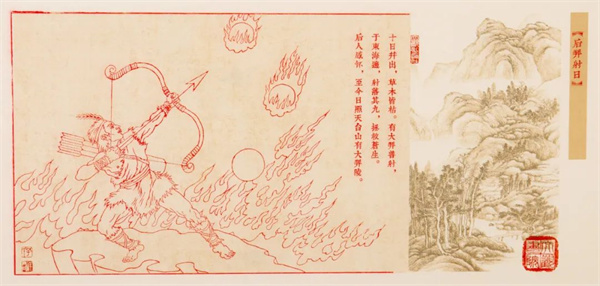 【后羿射日】
十日并出，草木皆枯。有大羿善射，
于東海邊，射落其九，拯救蒼生。
后人感懷，至今日照天台山有大羿陵。